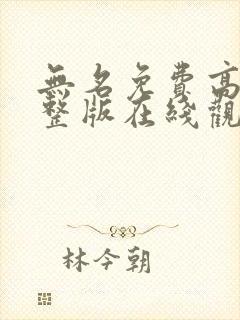 無名免費高
整版在綫觀
林今朝